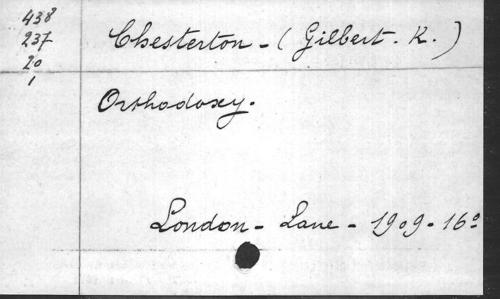 438
237
20
1
Chesterton - (Gilbert. K.)
Orthodoxy.
London - Lane - 1909 - 16º